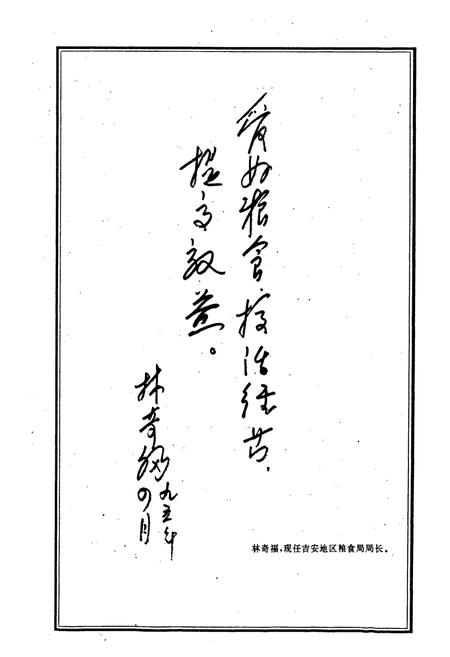 管好粮食，搞活经营，
提高效益。
林奇福
九五年
四月
林奇福，现任吉安地区粮食局局长。